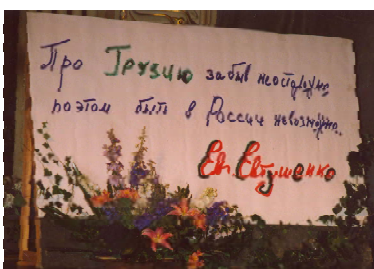 Про Грузию забыв неосторожно
поэтом быть в России невозможно.
Евг. Евтушенко